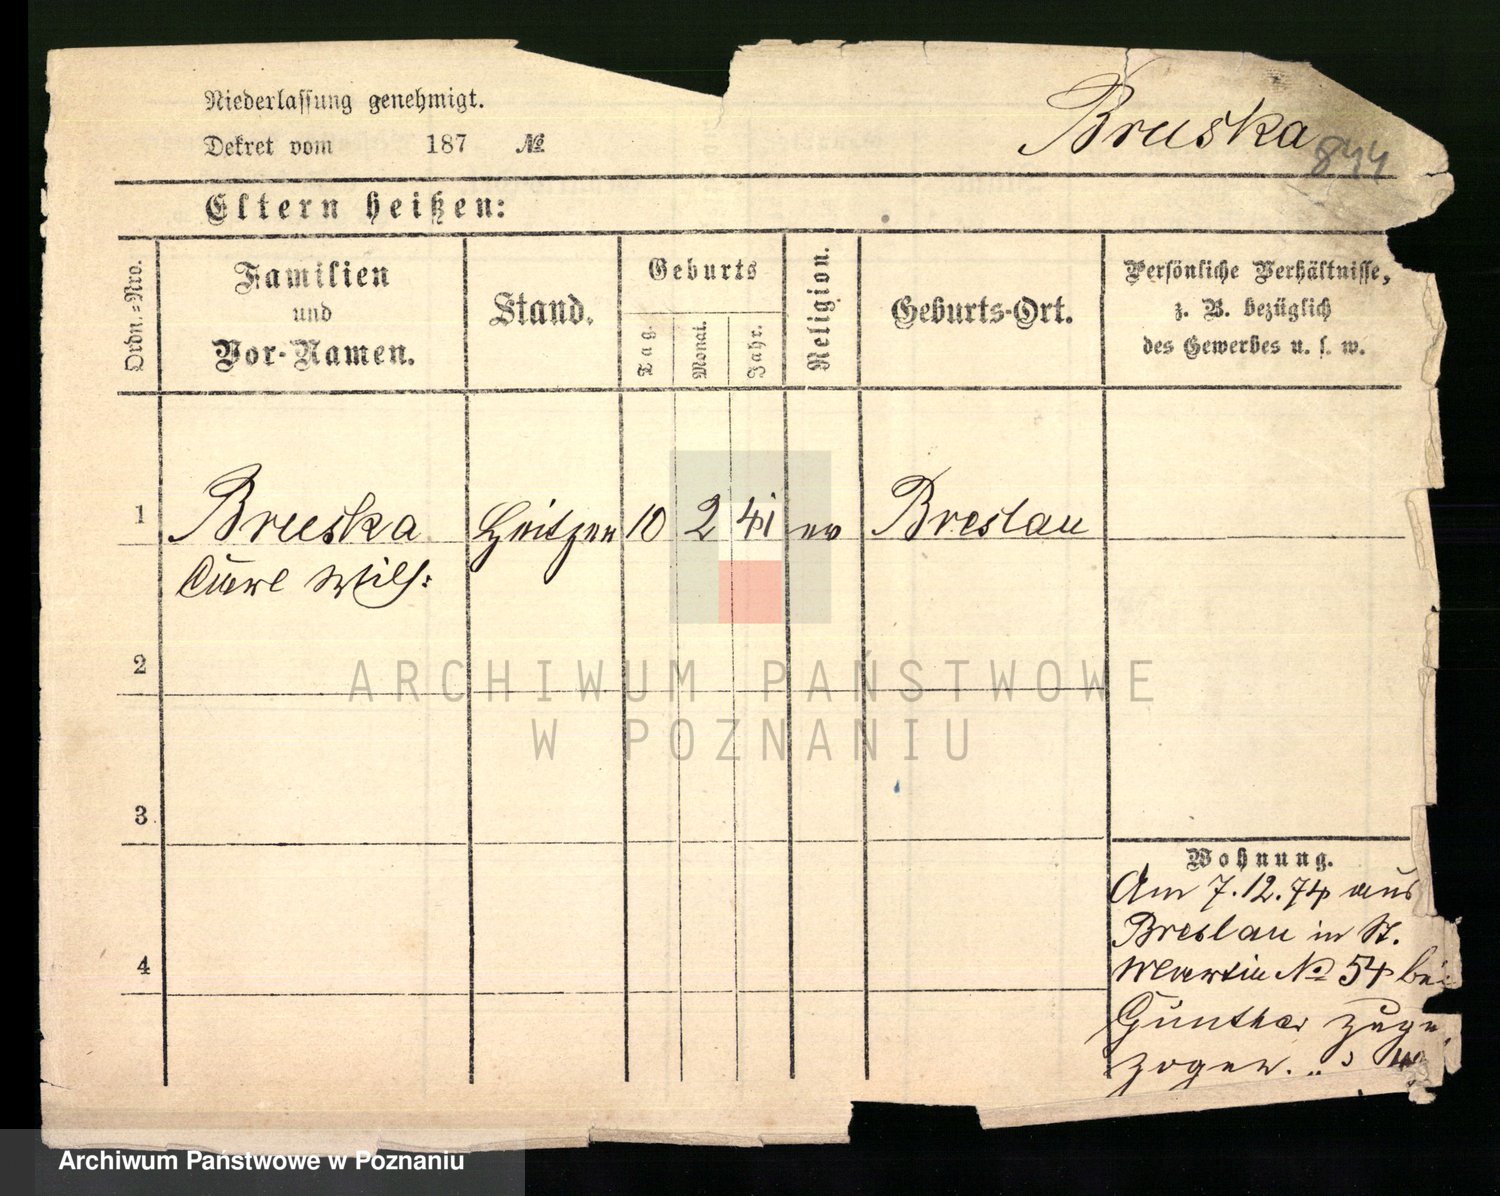 Niederlassung genehmigt.
Bruska
844
Dekret vom 187 №
Eltern heißen:
Ordn.=Nro.
Familien
und
Vor-Namen.
Stand.
Geburts
Tag.
Monat.
Jahr.
Religion.
Geburts-Ort.
Persönliche Verhältnisse,
z. B. bezüglich
des Gewerbes u. s. w.
1 Bruska Heitzer 10 2 41 ev Breslau
Carl Wilh:
2
3
4
Wohnung.
Am 7.12.74 aus
Breslau in St.
Martin No 54 bei
Günther zuge
zogen.
ARCHIWUM PAŃSTWOWE
W POZNANIU
Archiwum Państwowe w Poznaniu